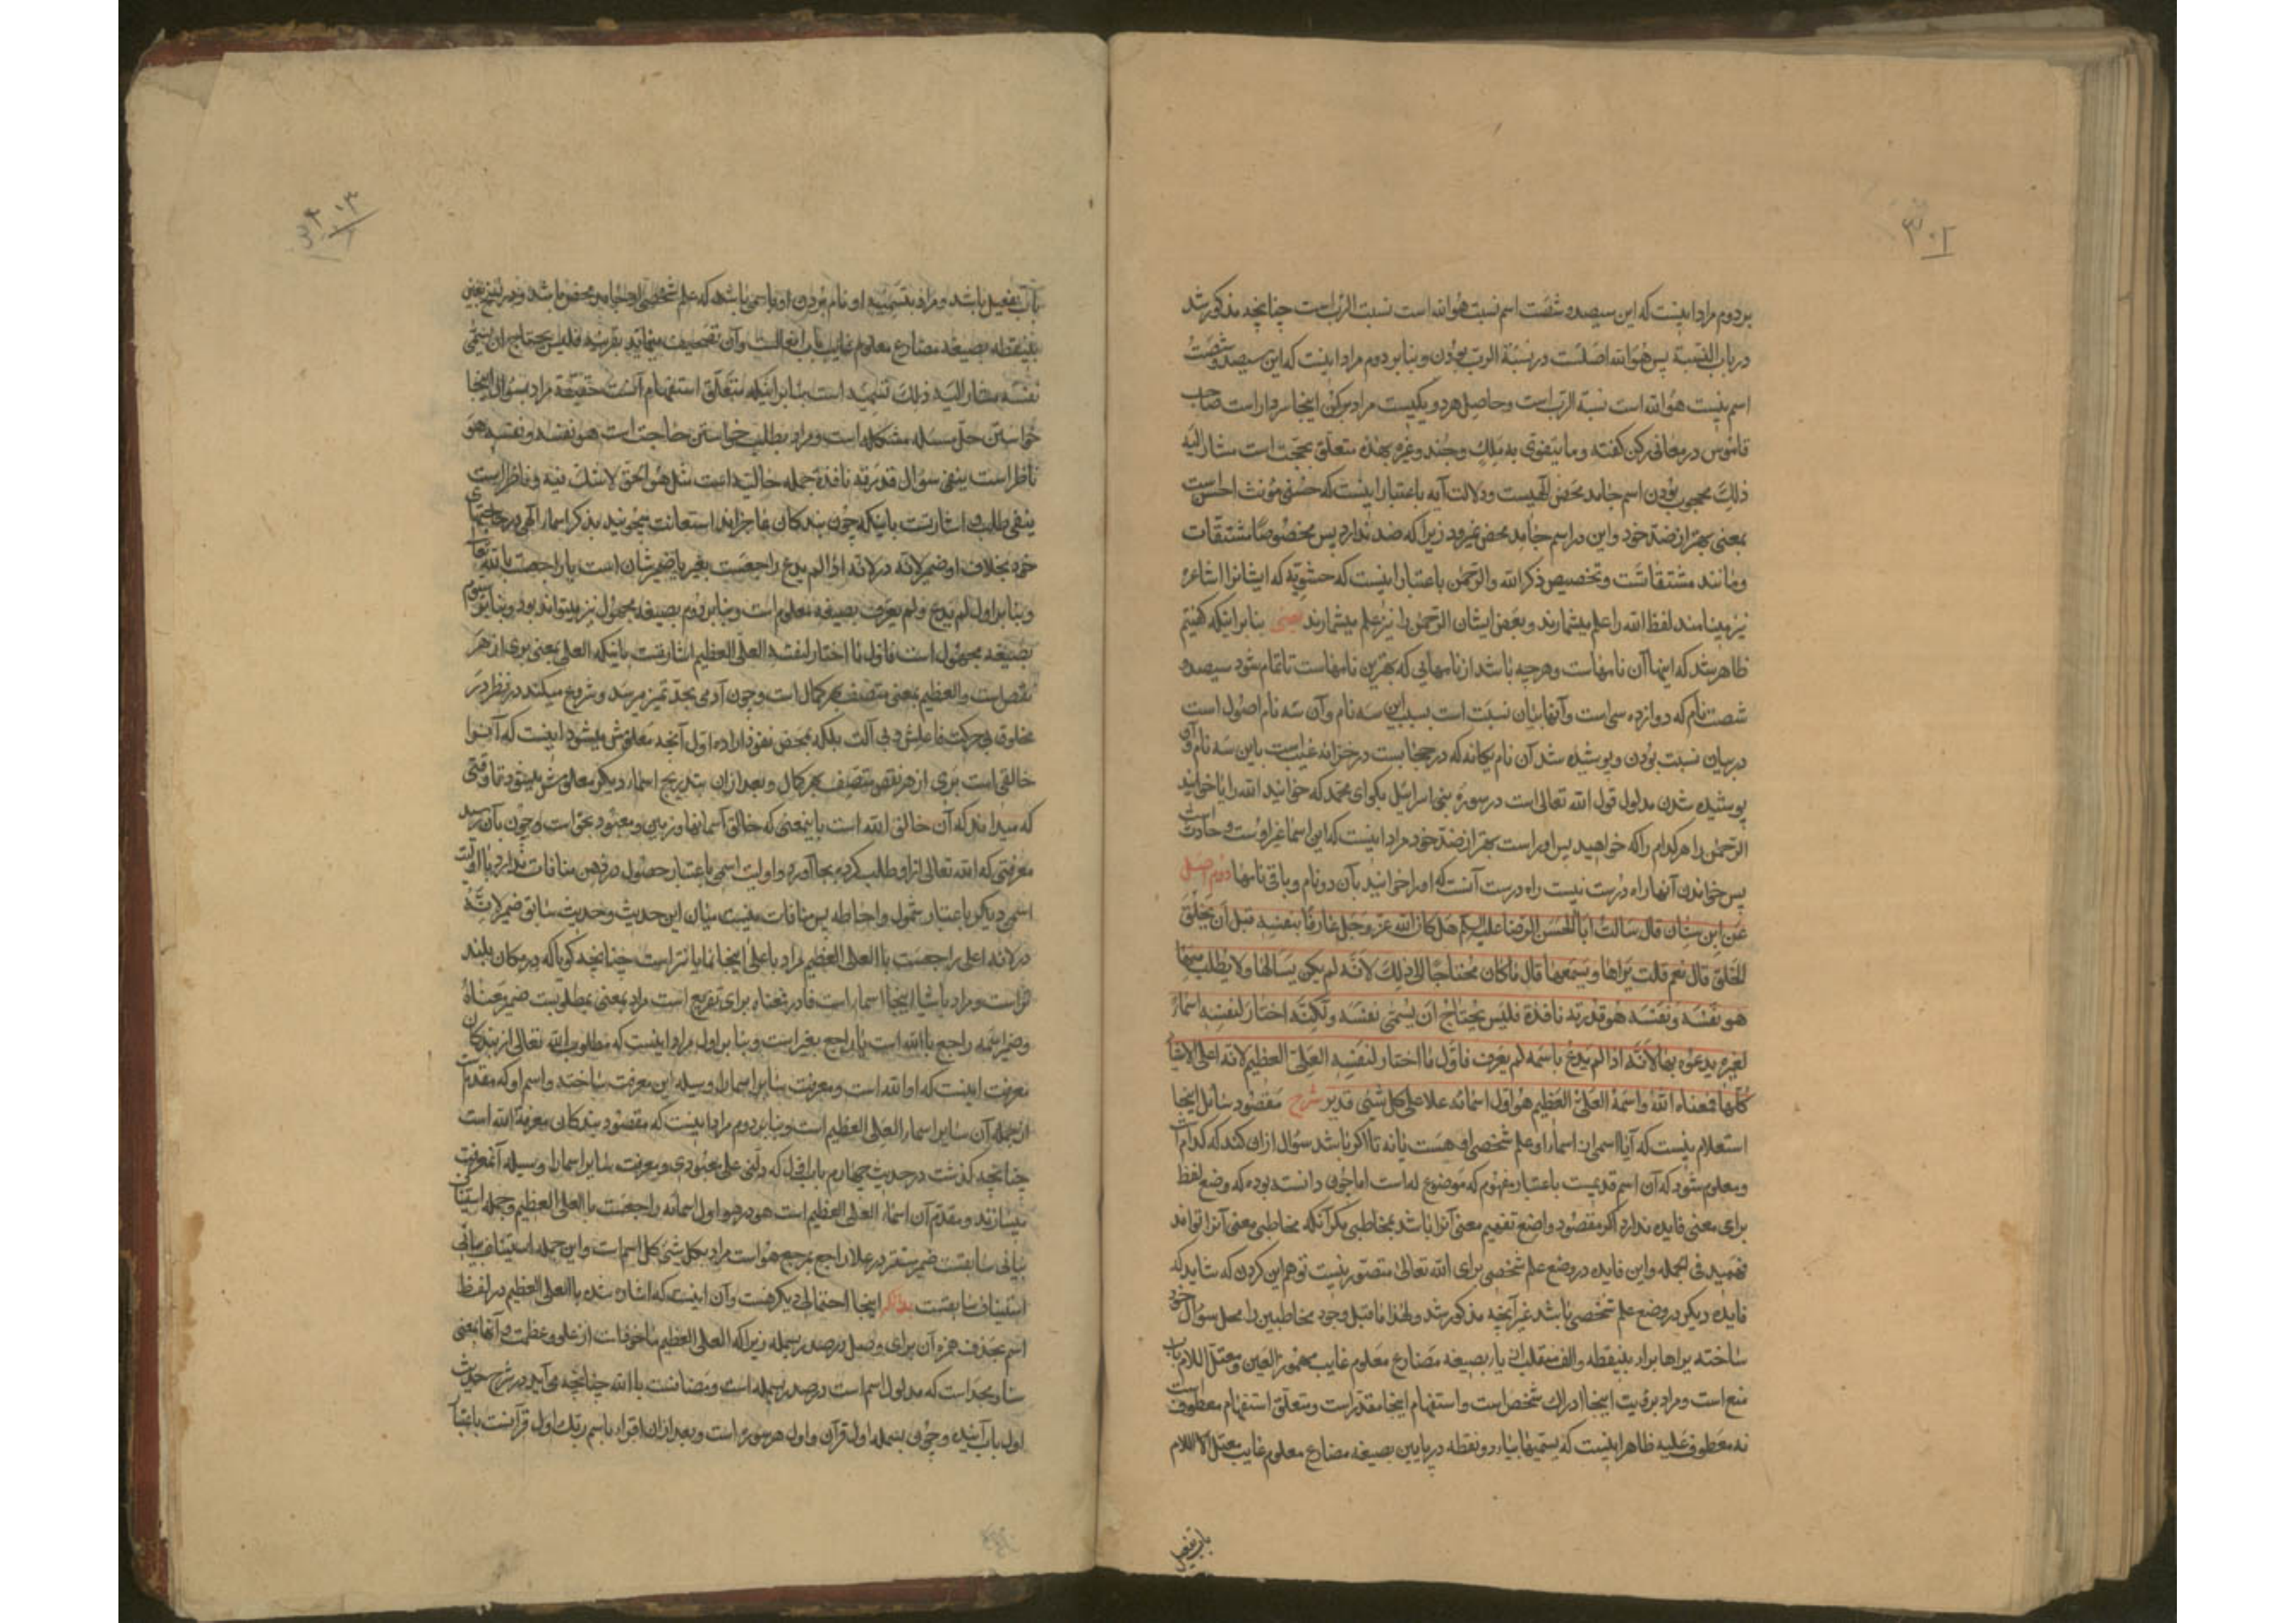 ۳۰۲
بر دوم مراد اینست که این سیصد و شصت اسم نسبت هو الله است نسبت الرب است چنانچه مذکور شد
در باب النسبة پس هو الله اصلست در نسبة الرب بودن و بنا بر دوم مراد اینست که این سیصد و شصت
اسم نیست هو الله است نسبة الرب است و حاصل هر دو یکیست مراد برکن اینجا سردار است صاحب
قاموس در معانی رکن گفته و ما یتقوی به ملک و جند و غیره بهذه متعلق بحجت است مشار الیه
ذلک محجوب بودن اسم جامد محض الهیست و دلالت آیه باعتبار اینست که حسنی مؤنث احسن است
بمعنی بهتر از ضد خود و این در اسم جامد محض نمیرود زیرا که ضد ندارد پس مخصوصا مشتقات
و مانند مشتقاتست و تخصیص ذکر الله و الرحمن باعتبار اینست که حشویه که ایشانرا اشاعره
نیز مینامند لفظ الله را علم میشمارند و بعض ایشان الرحمن را نیز علم میشمارند یعنی بنا بر اینکه گفتیم
ظاهر شد که اینها آن نامهاست و هر چه باشد از نامهایی که بهترین نامهاست تا تمام شود سیصد و
شصت نام که دوازده سی است و آنها بیان نسبت است بسبب این سه نام و آن سه نام اصول است
در بیان نسبت بودن و پوشیده شد آن نام یگانه که در حجابست در خزانه غیب است باین سه نام و آن
پوشیده شدن مدلول قول الله تعالی است در سوره بنی اسرائیل بگو ای محمد که خوانید الله را یا خوانید
الرحمن را هر کدام را که خواهید پس او راست بهتر از ضد خود مراد اینست که این اسما غیر اوست و حادث است
پس خواندن آنها راه درست نیست راه درست آنست که او را خوانید بآن دو نام و باقی نامها دوم اصل
عن ابن سنان قال سألت أبا الحسن الرضا علیه السلم هل کان الله عز و جل عارفا بنفسه قبل أن یخلق
الخلق قال نعم قلت یراها و یسمعها قال ما کان محتاجا إلی ذلک لانه لم یکن یسألها و لا یطلب منها
هو نفسه و نفسه هو قدرته نافذة فلیس یحتاج ان یسمی نفسه و لکنه اختار لنفسه اسماء
لغیره یدعوه بها لانه اذا لم یدع باسمه لم یعرف فاول ما اختار لنفسه العلی العظیم لانه اعلی الاشیاء
کلها فمعناه الله و اسمه العلی العظیم هو اول اسمائه علا علی کل شیء قدیر شرح مقصود سائل اینجا
استعلام نیست که آیا اسمی از اسماء او علم شخصی او هست یا نه تا اگر باشد سؤال از آن کند که کدام است
و معلوم شود که آن اسم قدیمست باعتبار مفهوم که موضوع له است اما چون دانسته بوده که وضع لفظ
برای معنی فایده ندارد اگر مقصود واضع تفهیم معنی آنرا باشد بمخاطبی مگر آنکه مخاطب معنی آنرا تواند
فهمید فی الجمله و این فایده در وضع علم شخصی برای الله تعالی متصور نیست توهم این کردن که شاید که
فایده دیگر در وضع علم شخصی باشد غیر آنچه مذکور شد و لهذا ما قبل وجود مخاطبین را محل سؤال خود
ساخته یراها براء بینقطه و الف منقلب از یاء بصیغه مضارع معلوم غایب مهموز العین و معتل اللام باب
منع است و مراد برؤیت اینجا ادراک شخص است و استفهام اینجا مقدر است و متعلق استفهام معطوف است
نه معطوف علیه ظاهر اینست که یسمیها بیاء دو نقطه در پایین بصیغه مضارع معلوم غایب معتل اللام
باب تفعیل
۳۰۳
باب تفعیل باشد و مراد بتسمیه او نام بردن او باسمی باشد که علم شخصی او یا جامد محض باشد و در نسخ بعین
بینقطه بصیغه مضارع معلوم غایب باب افعالست و آن تصحیف مینماید بقرینه فلیس یحتاج ان یسمی
نفسه مشار الیه ذلک تسمیه است بنا بر اینکه متعلق استفهام آنست حقیقة مراد بسؤال اینجا
خواستن حل مسئله مشکله است و مراد بطلب خواستن حاجت است هو نفسه و نفسه هو
ناظر است بنفی سؤال قدرته نافذة جمله حالیه است مثل هو الحق لا شک فیه و ناظر است
بنفی طلب و اشارتست باینکه چون بندگان عاجزاند استعانت میجویند بذکر اسماء الهی در حاجتهای
خود بخلاف او ضمیر لانه در لانه اذا لم یدع راجعست بغیر یا ضمیر شان است یا راجعست بالله تعالی
و بنا بر اول لم یدع و لم یعرف بصیغه معلوم است و بنا بر دوم بصیغه مجهول نیز میتواند بود و بنا بر سوم
بصیغه مجهول است فاول ما اختار لنفسه العلی العظیم اشارتست باینکه العلی بمعنی بری از هر
نقص است و العظیم بمعنی متصف بهر کمال است و چون آدمی بحد تمیز میرسد و شروع میکند در نظر در
مخلوق بی حرکت فاعلش و بی آلت بلکه بمحض نفوذ اراده اول آنچه معلومش میشود اینست که آنرا
خالقی است بری از هر نقص متصف بهر کمال و بعد از آن بتدریج اسماء دیگر معلومش میشود تا وقتی
که میداند که آن خالق الله است باینمعنی که خالق آسمانها و زمین و معبود بحق است و چون بآن رسید
معرفتی که الله تعالی از او طلب کرده بجا آورده و اولیت اسمی باعتبار حصول در ذهن منافات ندارد با اولیت
اسمی دیگر باعتبار شمول و احاطه پس منافات نیست میان این حدیث و حدیث سابق ضمیر لانه
در لانه اعلی راجعست با العلی العظیم مراد باعلی اینجا نمایانتر است چنانچه گویا که در مکان بلند
تر است و مراد باشیا اینجا اسماء است فا در فمعناه برای تفریع است مراد بمعنی مطلوبست ضمیر معناه
و ضمیر اسمه راجع بالله است یا راجع بغیر است و بنا بر اول مراد اینست که مطلوب الله تعالی از بندگان
معرفت اینست که او الله است و معرفت سایر اسماء را وسیله این معرفت ساخته و اسم او که مقدمست
از جمله آن سایر اسماء العلی العظیم است و بنا بر دوم مراد اینست که مقصود بندگان معرفة الله است
چنانچه گذشت در حدیث چهارم باب اول که دلنی علی معبودی و معرفت سایر اسما را وسیله آنمعرفت
میسازند و مقدم آن اسماء العلی العظیم است هو در هو اول اسمائه راجعست با العلی العظیم و جمله استیناف
بیانی سابقست ضمیر مستتر در علا راجع بمرجع هو است مراد بکل شیء کل اسم است و این جمله استیناف بیانی
استیناف سابقست اینجا احتمالی دیگر هست و آن اینست که اشاره شده با العلی العظیم در لفظ
اسم بحذف همزه آن برای وصل در صدر بسمله زیرا که العلی العظیم مأخوذست از علو و عظمت و آنها بمعنی
سناء و مجد است که مدلول اسم است در صدر بسمله است و مضافست بالله چنانچه می‌آید در شرح حدیث
اول باب آینده و چون بسمله اول قرآن و اول هر سوره است و بعد از آن اقراء باسم ربک اول قرآنست باعتبار